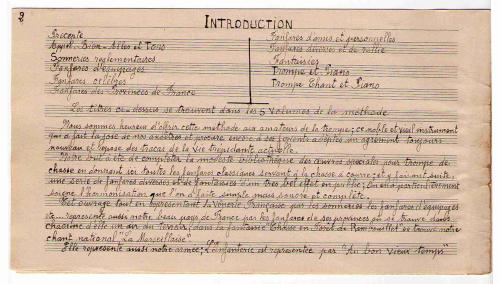 2
INTRODUCTION
Récente
Appel - Bien-Allés et Tons
Sonneries réglementaires
Fanfares d'équipages
Fanfares célèbres
Fanfares des Provinces de France
Fanfares d'amis et personnelles
Fanfares diverses et de
Fantaisies
Trompe et Piano
Trompe Chant et Piano
Les titres ci-dessus se trouvent dans les 5 volumes de la méthode
Nous sommes heureux d'offrir cette méthode aux amateurs de la trompe; ce noble et vieil instrument
qui a fait la joie de nos ancêtres et procure encore à ses fervents adeptes un agrément toujours
nouveau et repose des tracas de la vie trépidante actuelle.
Notre but a été de compléter la modeste bibliothèque des œuvres spéciales pour trompe de
chasse en donnant ici toutes les fanfares classiques servant à la chasse à courre, et y faisant suite,
une série de fanfares diverses et de fantaisies d'un très bel effet en public. On en a particulièrement
soigné l'harmonisation qui d'un style simple mais sonore et complète.
Cet ouvrage tout en représentant la Vénerie Française par les sonneries les fanfares d'équipages
etc... représente aussi notre beau pays de France par les fanfares de ses provinces où se trouve dans
chacune d'elle un air du terroir; dans la fantaisie Chasse en Forêt de Rambouillet se trouve notre
chant national "La Marseillaise"
Elle représente aussi notre armée; L'infanterie est représentée par "Au bon vieux temps"